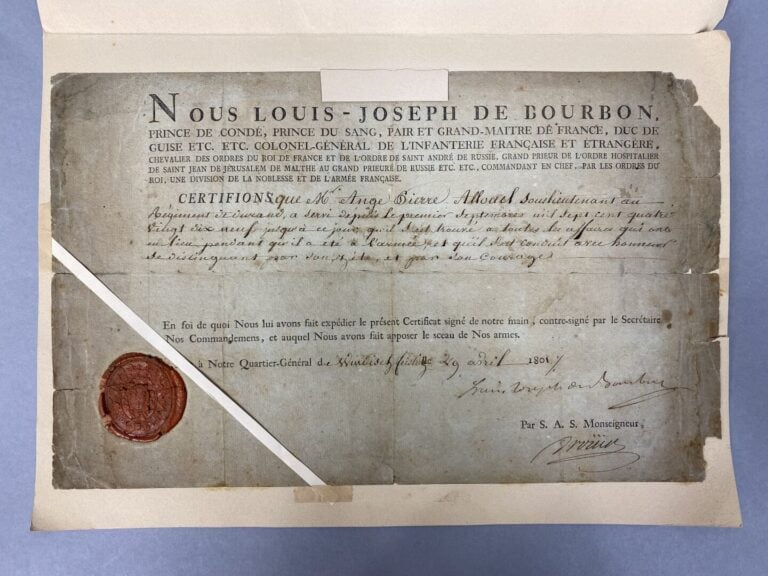 NOUS LOUIS-JOSEPH DE BOURBON,
PRINCE DE CONDÉ, PRINCE DU SANG, PAIR ET GRAND-MAITRE DE FRANCE, DUC DE
GUISE ETC. ETC. COLONEL-GÉNÉRAL DE L'INFANTERIE FRANÇAISE ET ÉTRANGÈRE,
CHEVALIER DES ORDRES DU ROI DE FRANCE ET DE L'ORDRE DE SAINT ANDRÉ DE RUSSIE, GRAND PRIEUR DE L'ORDRE HOSPITALIER
DE SAINT JEAN DE JÉRUSALEM DE MALTHE AU GRAND PRIEURÉ DE RUSSIE ETC. ETC., COMMANDANT EN CHEF, PAR LES ORDRES DU
ROI, UNE DIVISION DE LA NOBLESSE ET DE L'ARMÉE FRANÇAISE.
CERTIFIONS que Mr. Ange Pierre Souslieutenant au
Régiment de a servi depuis le premier mil sept cent quatre
vingt dix neuf jusqu'à ce jour, qu'il s'est trouvé a toutes les affaires qui ont
eu lieu pendant qu'il a été à l'armée, et qu'il s'est conduit avec honneur
se distinguant par son zèle, et par son Courage
En foi de quoi Nous lui avons fait expédier le présent Certificat signé de notre main, contre-signé par le Secrétaire
Nos Commandemens, et auquel Nous avons fait apposer le sceau de Nos armes.
à Notre Quartier-Général de 29 avril 1801
Louis Joseph de Bourbon
Par S. A. S. Monseigneur,